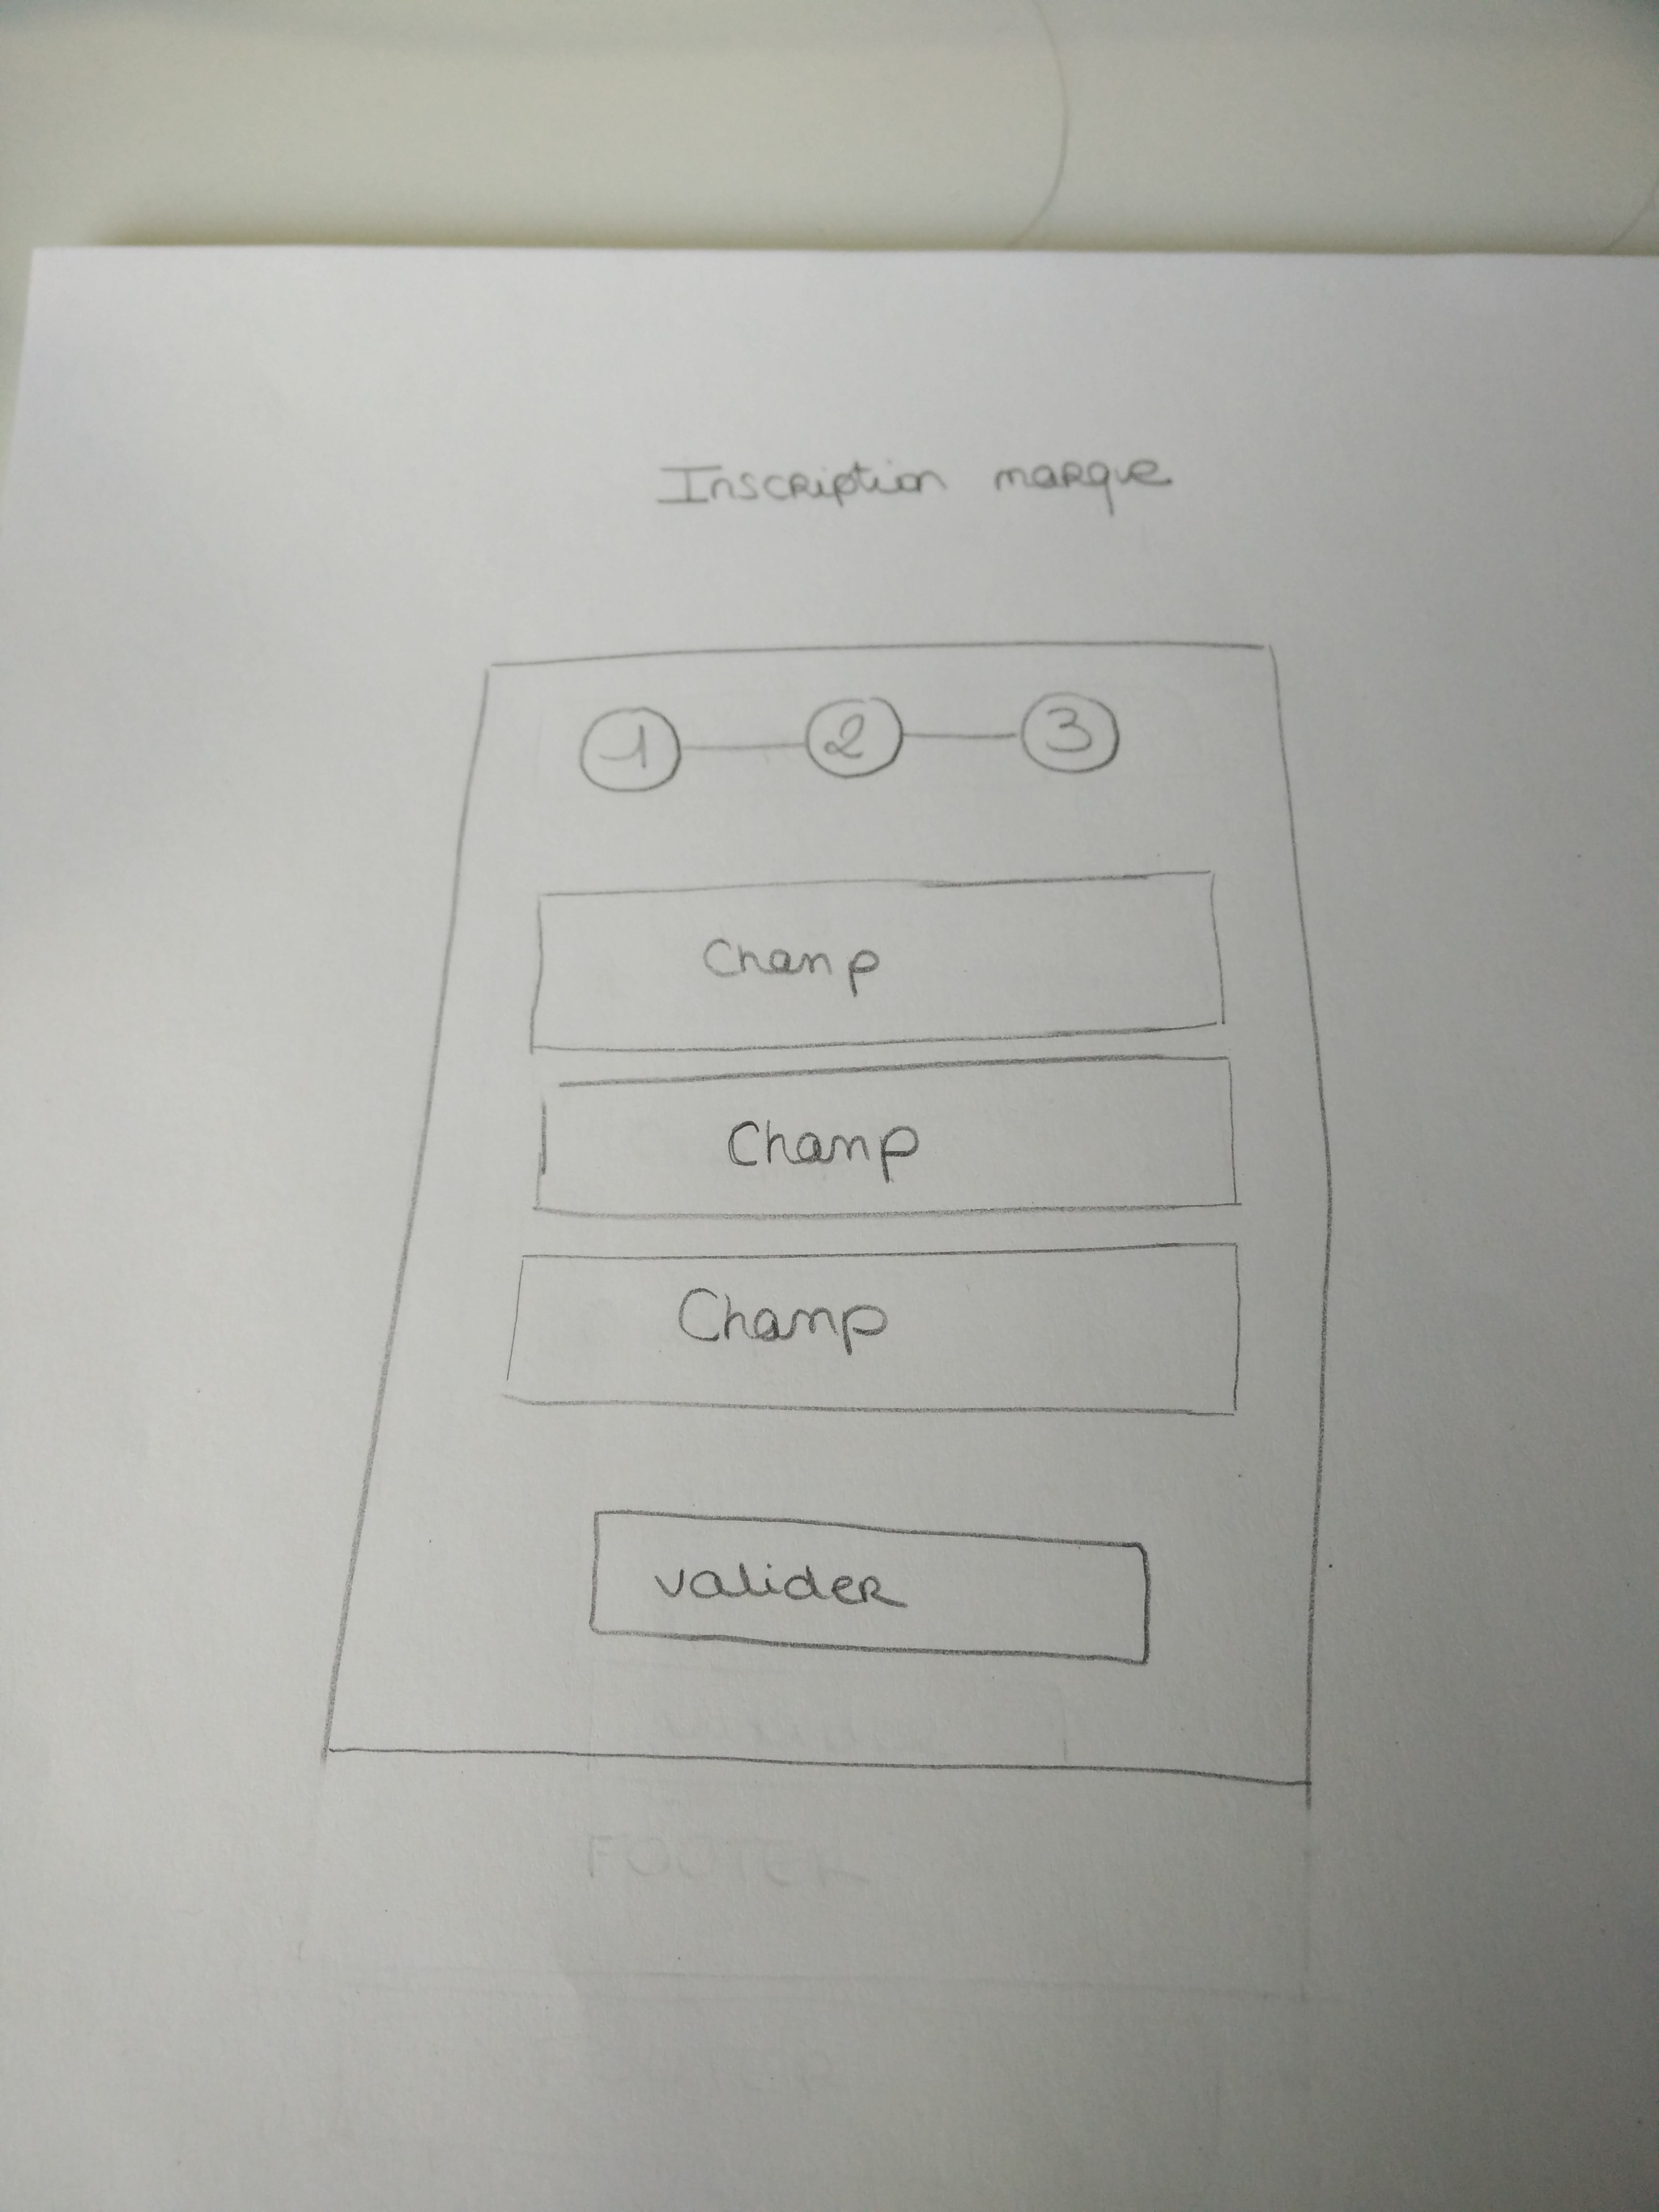 Inscription marque
1 2 3
Champ
Champ
Champ
valider
FOOTER